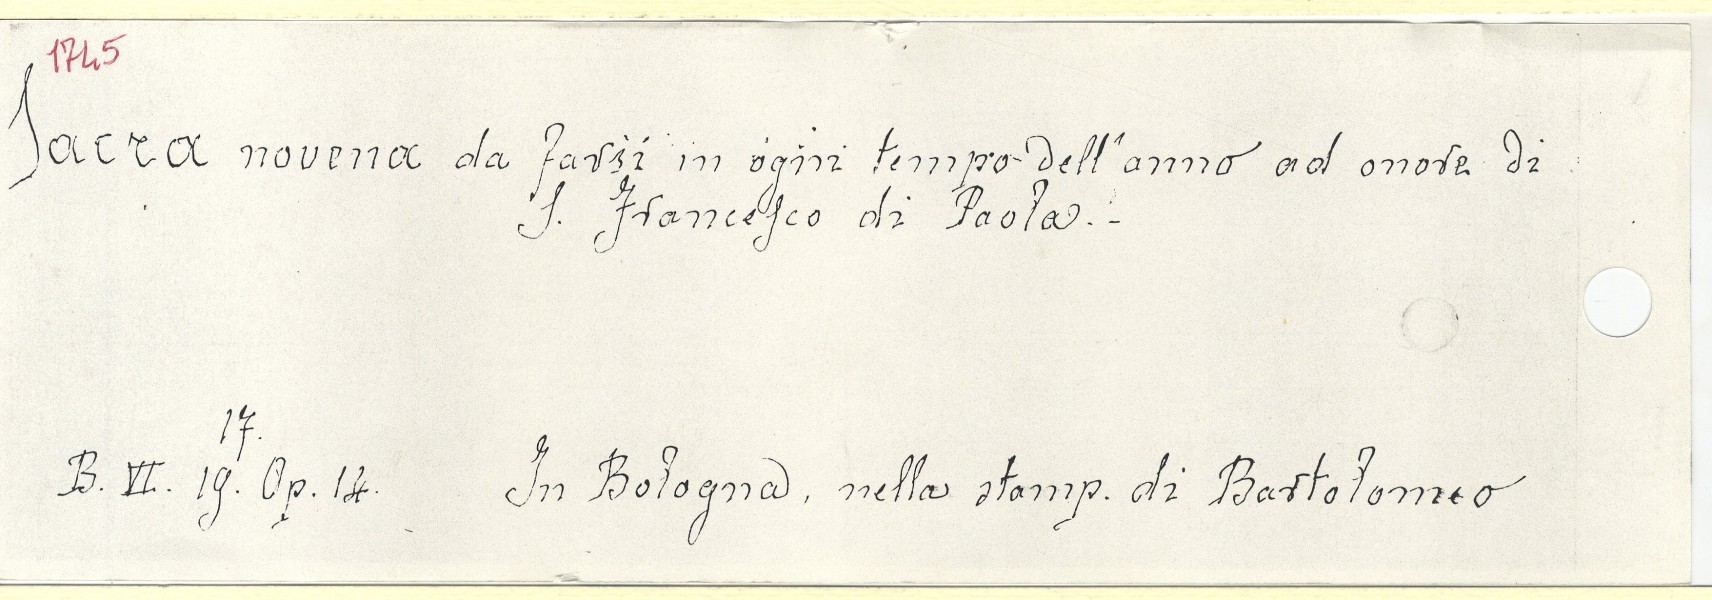 1745
Sacra novena da farsi in ogni tempo dell'anno ad onore di
S. Francesco di Paola.-
17.
B. VII. 19. Op. 14. In Bologna, nella stamp. di Bartolomeo